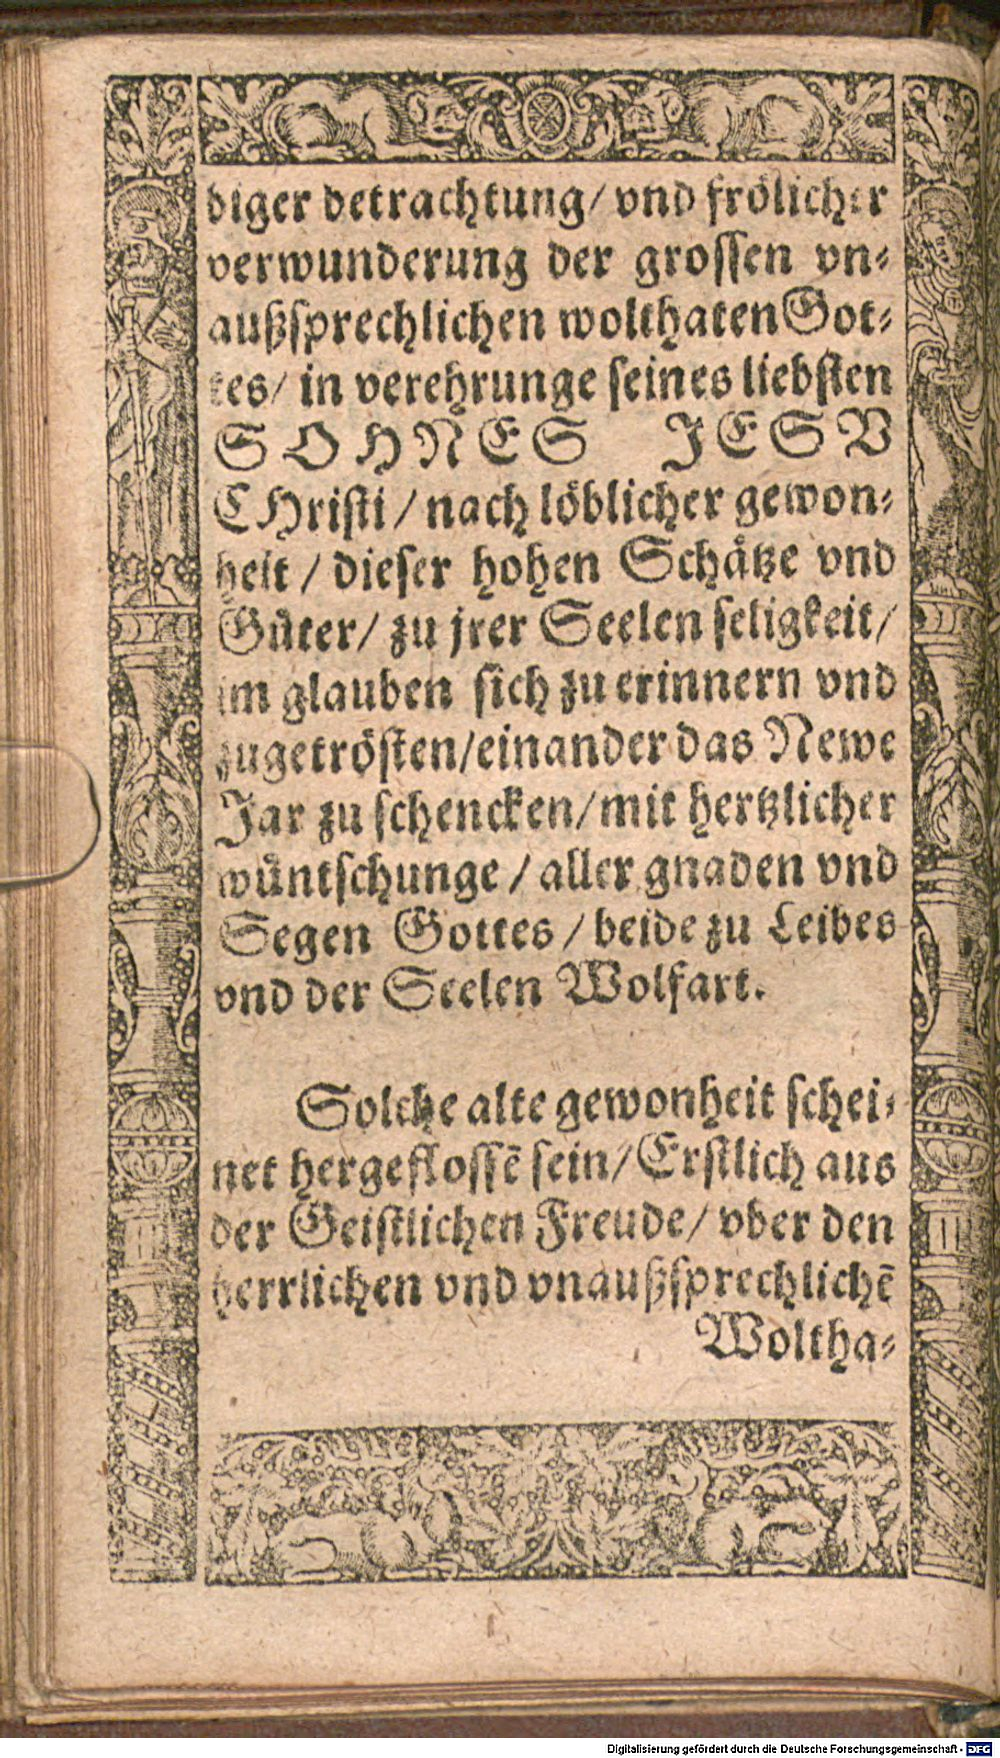 diger betrachtung/ vnd frölicher
verwunderung der grossen vn⸗
außsprechlichen wolthaten Got⸗
tes/ in verehrunge seines liebsten
SOHNES JESV
CHristi/ nach löblicher gewon⸗
heit/ dieser hohen Schätze vnd
Güter/ zu jrer Seelen seligkeit/
im glauben sich zu erinnern vnd
zugetrösten/einander das Newe
Jar zu schencken/mit hertzlicher
wüntschunge/ aller gnaden vnd
Segen Gottes/ beide zu Leibes
vnd der Seelen Wolfart.
Solche alte gewonheit schei⸗
net hergeflossē sein/Erstlich aus
der Geistlichen Freude/ vber den
herrlichen vnd vnaußsprechlichē
Woltha⸗
Digitalisierung gefördert durch die Deutsche Forschungsgemeinschaft - DFG